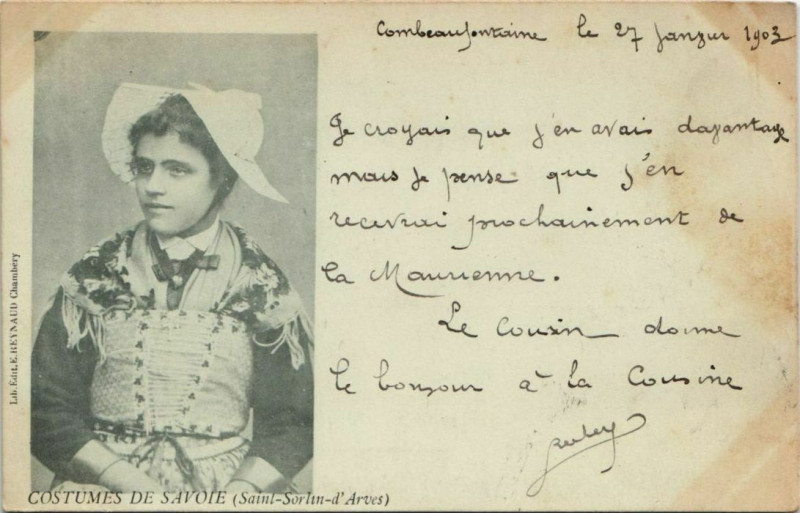 Combeaufontaine le 27 Janvier 1903
Je croyais que j'en avais davantage
mais je pense que j'en
recevrai prochainement de
la Maurienne.
Le Cousin donne
le bonjour à la Cousine
Lib. Édit. E. REYNAUD Chambéry
COSTUMES DE SAVOIE (Saint-Sorlin-d'Arves)